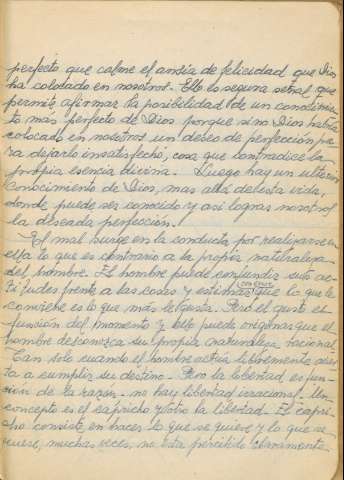 perfecto que calme el ansia de felicidad que Dios
ha colocado en nosotros. Ello es segura señal que
permite afirmar la posibilidad de un conocimien
to más perfecto de Dios porque si no Dios habría
colocado en nosotros un deseo de perfección pa
ra dejarlo insatisfecho, cosa que contradice la
propia esencia divina. Luego hay un ulterior
conocimiento de Dios, mas allá de esta vida,
donde puede ser conocido y así lograr nosotros
la deseada perfección.
El mal surge en la conducta por realizarse en
ella lo que es contrario a la propia naturaleza
del hombre. El hombre puede confundir sus ac-
titudes frente a las cosas y que lo que le
conviene es lo que más le gusta. Pero el gusto es
función del momento y ello puede originar que el
hombre desconozca su propia naturaleza racional.
Tan solo cuando el hombre actúa libremente
a cumplir su destino. Pero la libertad es fun-
ción de la razón. no hay libertad irracional. Un
concepto es el capricho y otro la libertad. El capri-
cho consiste en hacer lo que se quiere y lo que se
quiere, muchas veces, no esta percibido claramente